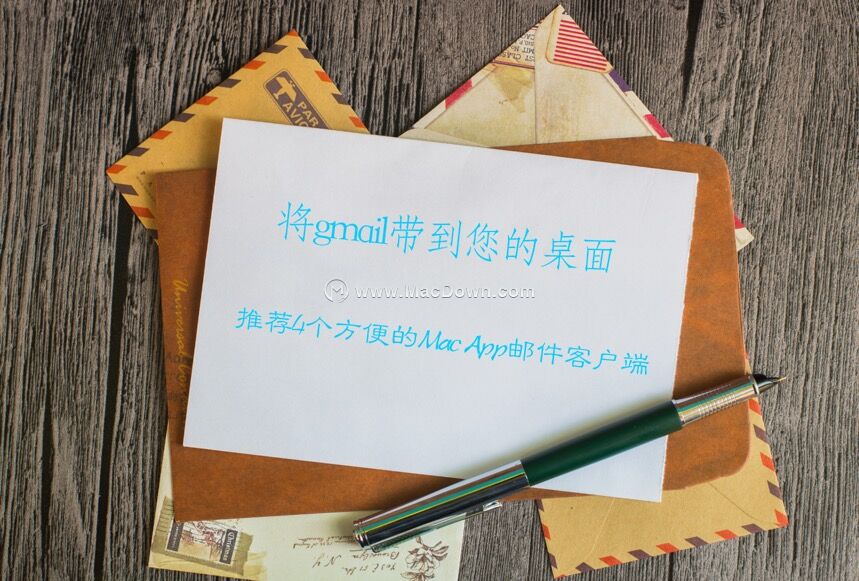 PAR
AVION
将gmail带到您的桌面
www.MacDown.com
推荐4个方便的Mac App邮件客户端
Christmas